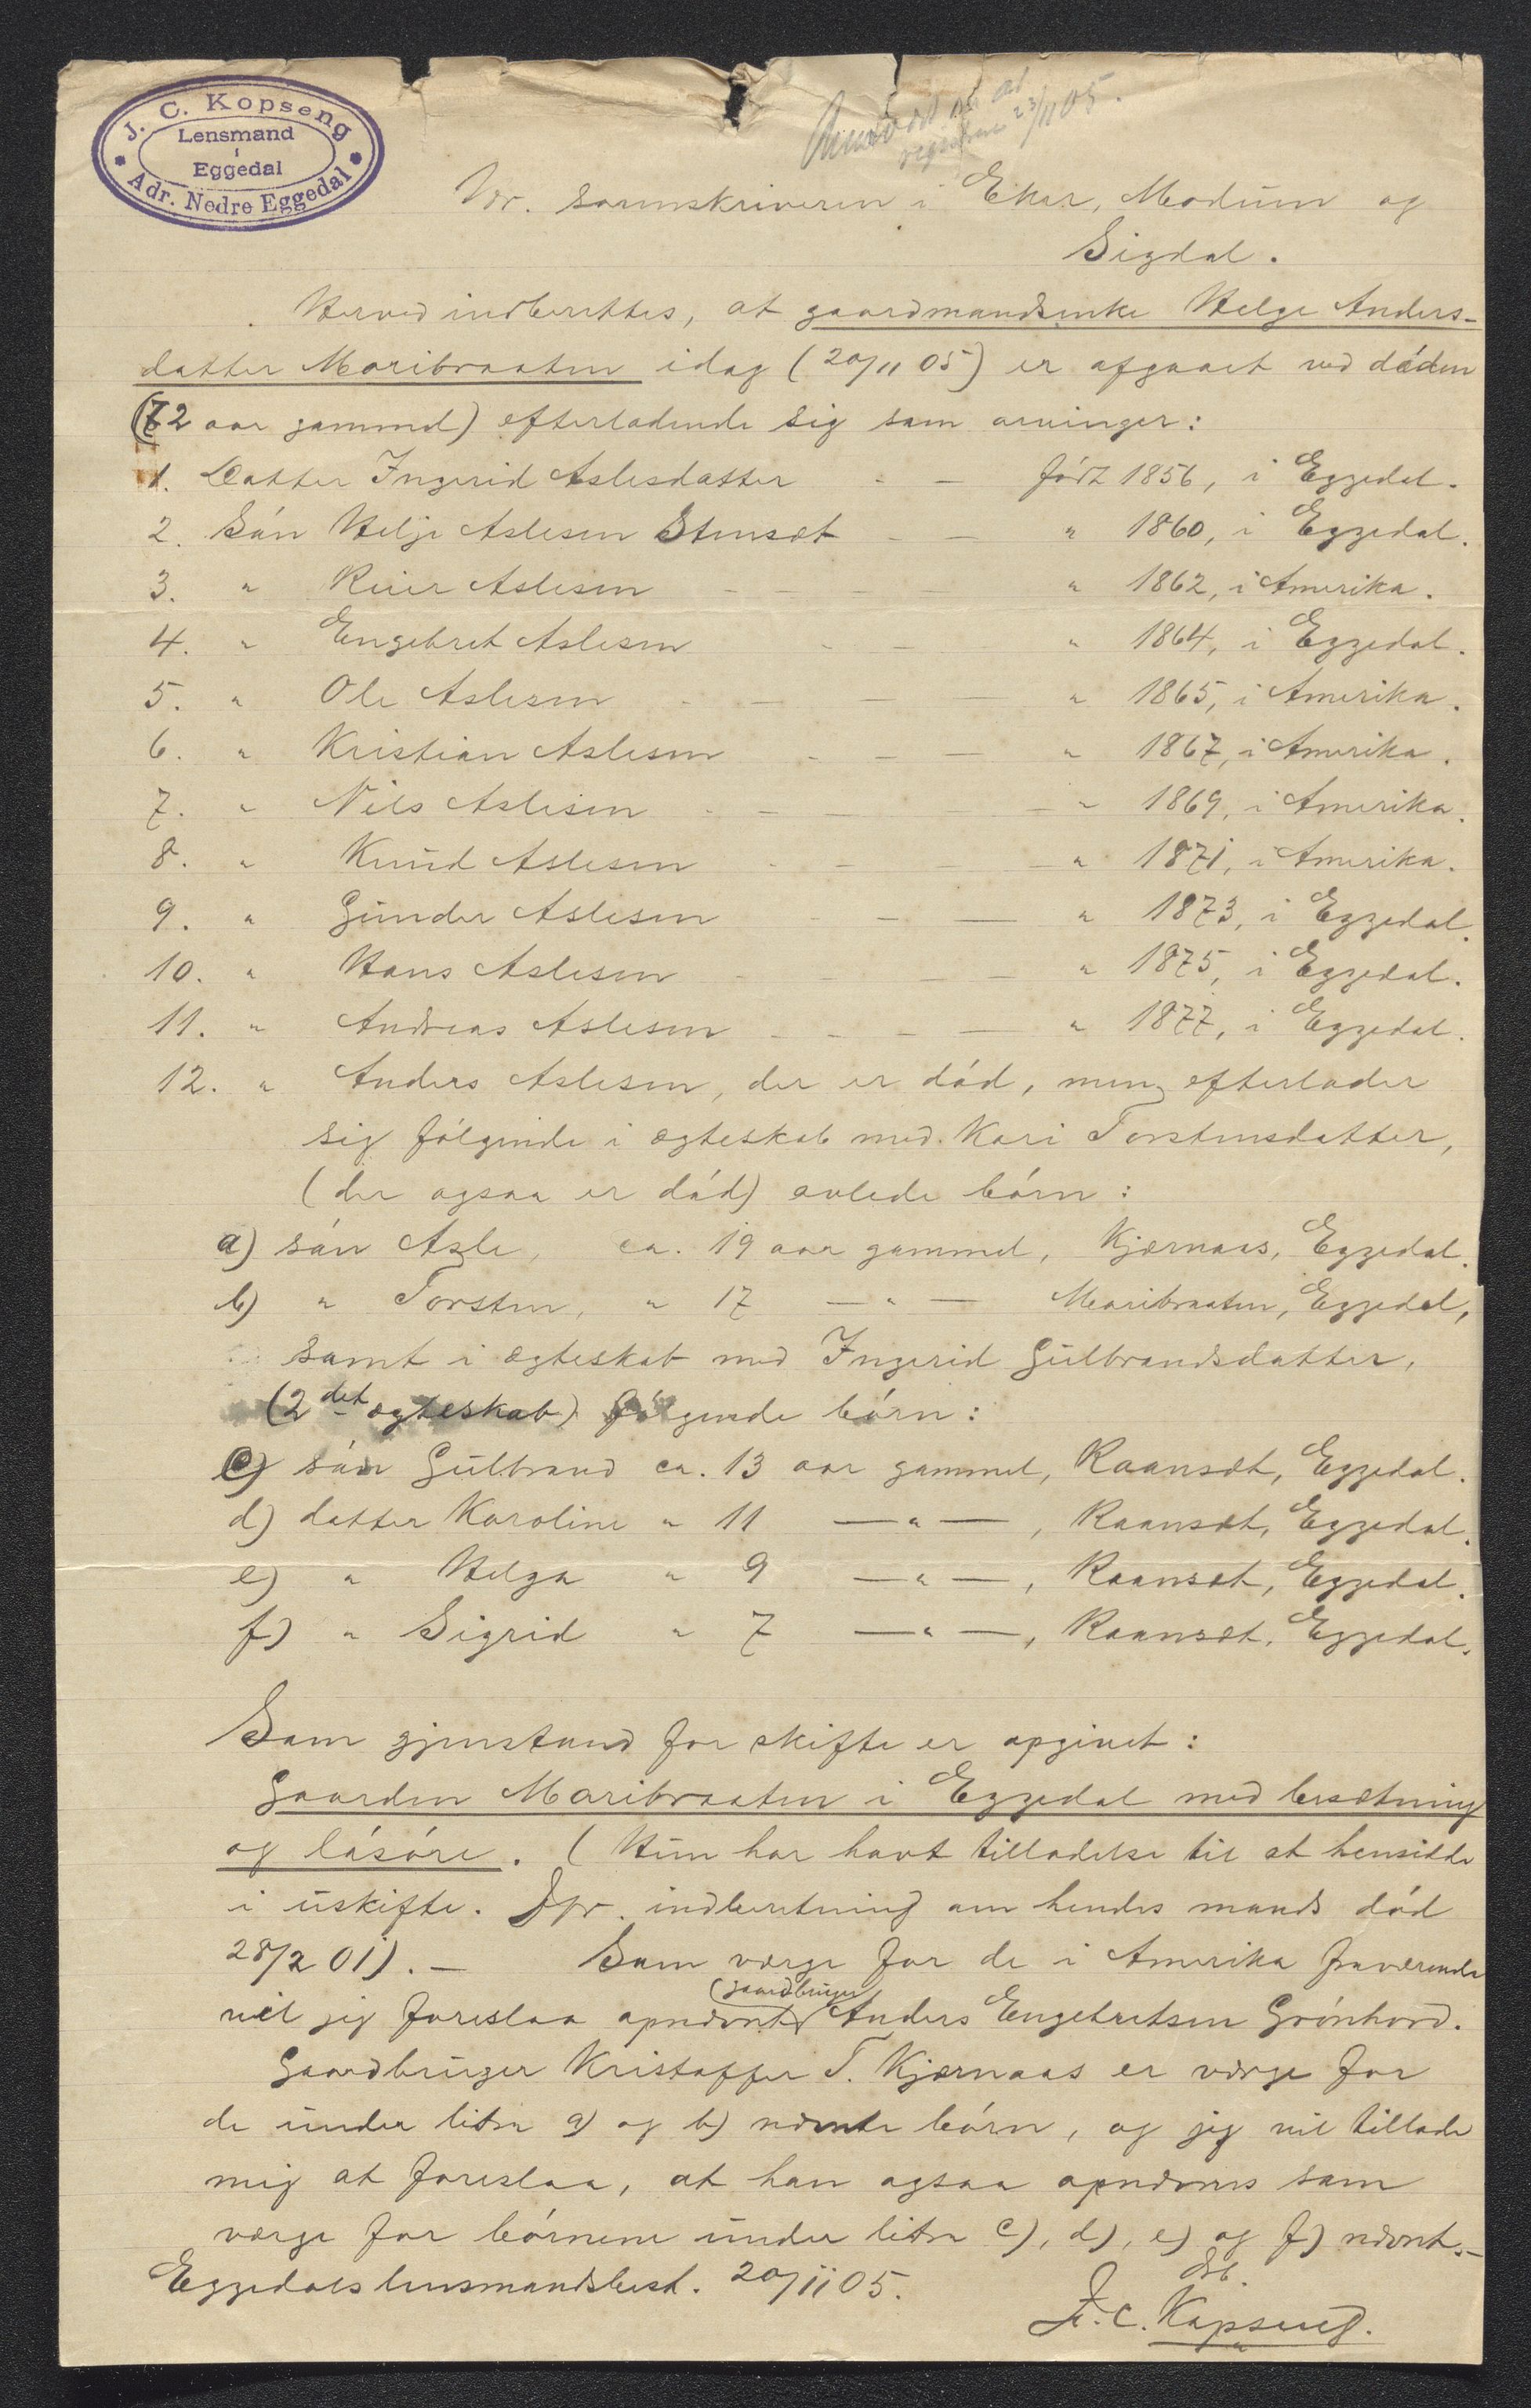 J. C. Kopseng
Lensmand
i
Eggedal
Adr. Nedre Eggedal
23/11 05.
Hr. sorenskriveren i Eker, Modum og
Sigdal.
Herved indberettes, at gaardmandsenke Helge Anders-
datter Maribraaten idag (20/11 05) er afgaaet ved døden
(72 aar gammel) efterladende sig som arvinger:
1. Datter Ingerid Aslesdatter - - født 1856, i Eggedal.
2. Søn Helje Aslesen Stensæt - - " 1860, i Eggedal.
3. " Reier Aslesen - - - - " 1862, i Amerika.
4. " Engebret Aslesen - - " 1864, i Eggedal.
5. " Ole Aslesen - - - - " 1865, i Amerika.
6. " Kristian Aslesen - - - " 1867, i Amerika.
7. " Nils Aslesen - - - - " 1869, i Amerika.
8. " Knud Aslesen - - - - " 1871, i Amerika.
9. " Gunder Aslesen - - - " 1873, i Eggedal.
10. " Hans Aslesen - - - - " 1875, i Eggedal.
11. " Andreas Aslesen - - - - " 1877, i Eggedal.
12. " Anders Aslesen, der er død, men efterlader
sig følgende i ægteskab med Kari Torstensdatter,
(der ogsaa er død) avlede børn:
a) søn Asle, ca. 19 aar gammel, Kjærnaas, Eggedal.
b) " Torsten, " 17 —"— Maribraaten, Eggedal,
samt i ægteskab med Ingerid Gulbrandsdatter,
(2det ægteskab) følgende børn:
c) søn Gulbrand ca. 13 aar gammel, Raansæt, Eggedal.
d) datter Karoline " 11 —"—, Raansæt, Eggedal.
e) " Helga " 9 —"—, Raansæt, Eggedal.
f) " Sigrid " 7 —"—, Raansæt, Eggedal.
Som gjenstand for skifte er opgivet:
Gaarden Maribraaten i Eggedal med besætning
og løsøre. (Hun har havt tilladelse til at hensidde
i uskifte. Jfr. indberetning om hendes mands død
28/2 01). — Som værge for de i Amerika fraværende
(gaardbruger
vil jeg foreslaa opnævnt Anders Engebretsen Grønhovd.
Gaardbruger Kristoffer T. Kjærnaas er værge for
de under litra a) og b) nævnte børn, og jeg vil tillade
mig at foreslaa, at han ogsaa opnævnes som
værge for børnene under litra c), d), e) og f) nævnt. -
Eggedals lensmandsbest. 20/11 05.
Ærb.
J. C. Kopseng.